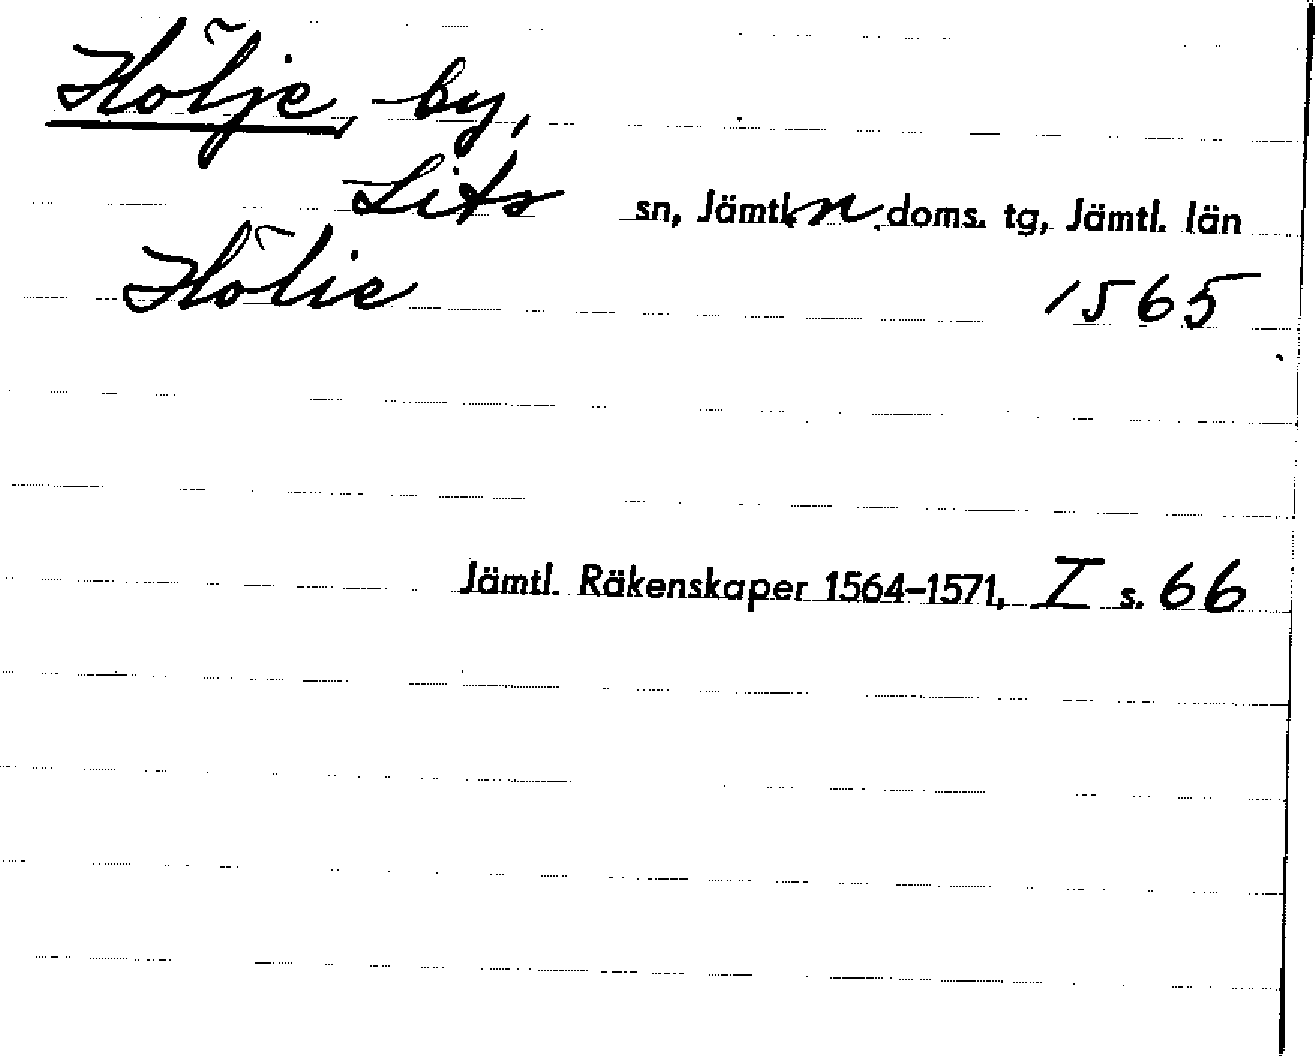 Hölje, by,
Lits sn, Jämtl. n. doms. tg, Jämtl. län
Hölie 1565
Jämtl. Räkenskaper 1564–1571, I s. 66